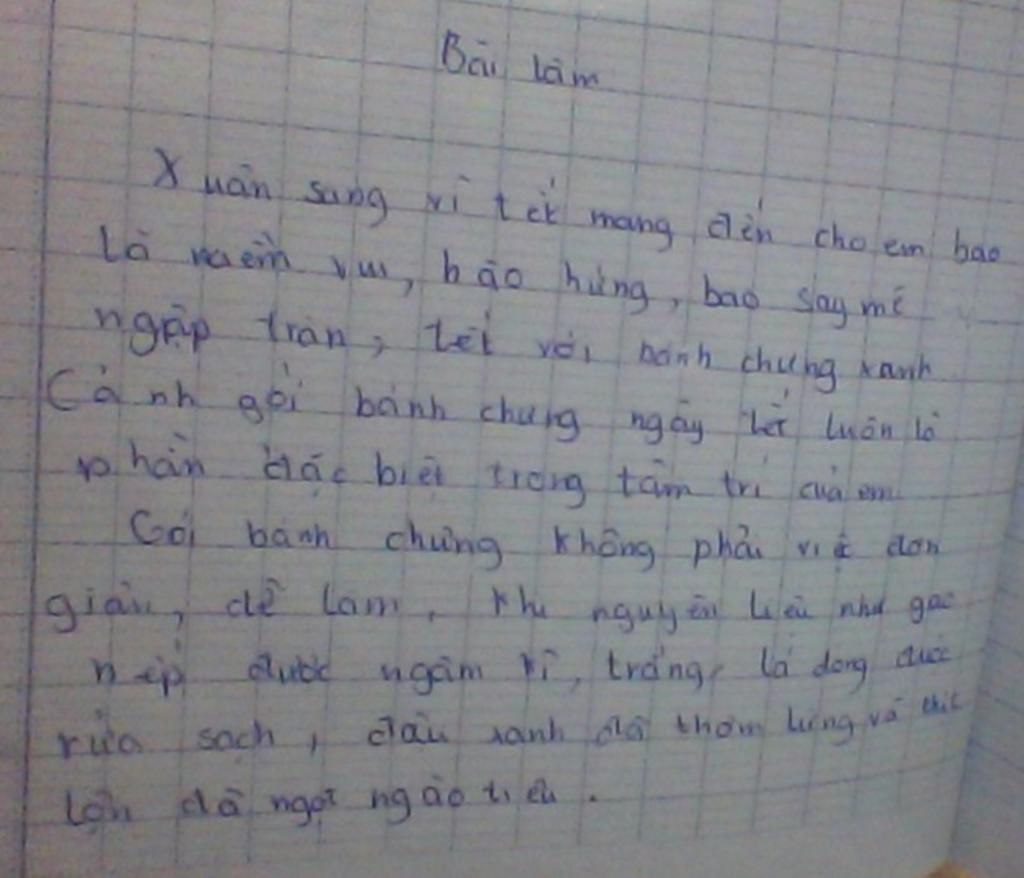 Bài làm
Xuân sang vì tết mang đến cho em bao
là niềm vui, hào hứng, bao say mê
ngập tràn, tết với bánh chưng xanh
Cảnh gói bánh chưng ngày tết luôn là
phần đặc biệt trong tâm trí của em
Gói bánh chưng không phải việc đơn
giản, dễ làm, khi nguyên liệu như gạo
nếp được ngâm kĩ, trắng, lá dong được
rửa sạch, đậu xanh đã thơm lừng và thịt
lợn đã ngọt ngào tiêu.